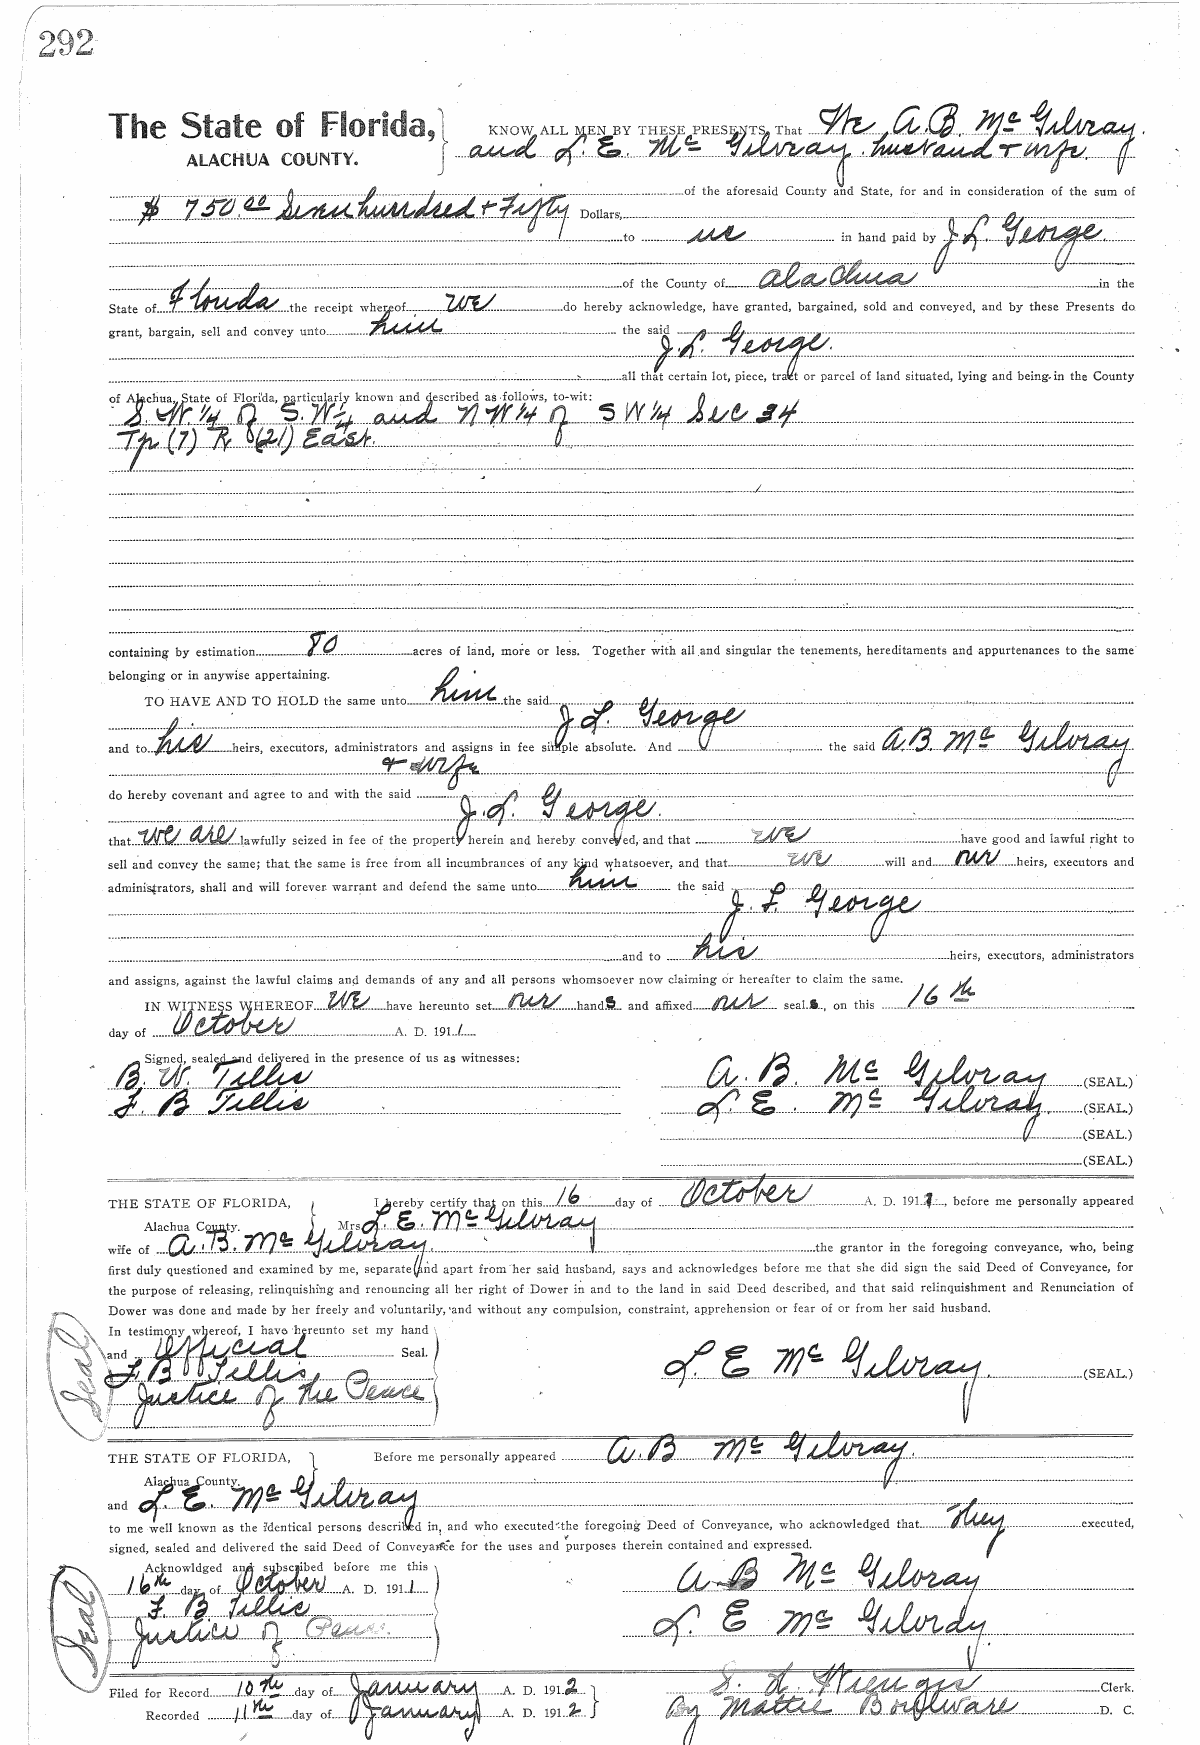 292
The State of Florida, KNOW ALL MEN BY THESE PRESENTS, That We A.B. McGilvray
ALACHUA COUNTY. and L. E. McGilvray husband + wife
of the aforesaid County and State, for and in consideration of the sum of
$ 750.00 Seven hundred + Fifty Dollars,
to us in hand paid by J L. George.
of the County of Alachua in the
State of Florida the receipt whereof we do hereby acknowledge, have granted, bargained, sold and conveyed, and by these Presents do
grant, bargain, sell and convey unto him the said
J. L. George.
all that certain lot, piece, tract or parcel of land situated, lying and being in the County
of Alachua, State of Florida, particularly known and described as follows, to-wit:
S.W. 1/4 of S.W 1/4 and N W 1/4 of S W 1/4 Sec 34
Tp (7) R (21) East.
containing by estimation 80 acres of land, more or less. Together with all and singular the tenements, hereditaments and appurtenances to the same
belonging or in anywise appertaining.
TO HAVE AND TO HOLD the same unto him the said
J L. George
and to his heirs, executors, administrators and assigns in fee simple absolute. And the said A.B. McGilvray
+ wife
do hereby covenant and agree to and with the said
J. L. George.
that we are lawfully seized in fee of the property herein and hereby conveyed, and that we have good and lawful right to
sell and convey the same; that the same is free from all incumbrances of any kind whatsoever, and that we will and our heirs, executors and
administrators, shall and will forever warrant and defend the same unto him the said
J. L. George
and to his heirs, executors, administrators
and assigns, against the lawful claims and demands of any and all persons whomsoever now claiming or hereafter to claim the same.
IN WITNESS WHEREOF we have hereunto set our hands and affixed our seal s, on this 16th
day of October A. D. 191 1
Signed, sealed and delivered in the presence of us as witnesses:
B. W. Tillis A. B. McGilvray (SEAL.)
F. B Tillis L. E. McGilvray. (SEAL.)
(SEAL.)
(SEAL.)
THE STATE OF FLORIDA, I hereby certify that on this 16 day of October A. D. 191 1, before me personally appeared
Alachua County. Mrs L. E. McGilvray
wife of A. B. McGilvray. the grantor in the foregoing conveyance, who, being
first duly questioned and examined by me, separate and apart from her said husband, says and acknowledges before me that she did sign the said Deed of Conveyance, for
the purpose of releasing, relinquishing and renouncing all her right of Dower in and to the land in said Deed described, and that said relinquishment and Renunciation of
Dower was done and made by her freely and voluntarily, and without any compulsion, constraint, apprehension or fear of or from her said husband.
In testimony whereof, I have hereunto set my hand
and Official Seal.
Seal F. B Tillis. L. E McGilvray. (SEAL)
Justice of the Peace
THE STATE OF FLORIDA, Before me personally appeared A. B McGilvray.
Alachua County.
and L. E. McGilvray
to me well known as the identical persons described in, and who executed the foregoing Deed of Conveyance, who acknowledged that They executed,
signed, sealed and delivered the said Deed of Conveyance for the uses and purposes therein contained and expressed.
Acknowldged and subscribed before me this
16th day of October A. D. 191 1 A B McGilvray
Seal F. B Tillis L. E McGilvray.
Justice of Peace.
Filed for Record 10th day of January A. D. 191 2 Clerk.
Recorded 11th day of January A. D. 191 2 By Mattie Boulware D. C.